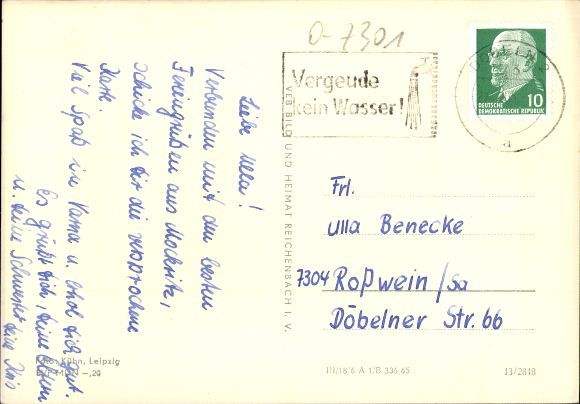 Liebe Ulla!
Verbunden mit den besten
Feriengrüßen aus Mockritz,
schicke ich dir die versprochene
Karte.
Viel Spaß in Varna u. erhol dich gut.
Es grüßt dich, deine Eltern
u. deine Schwester deine
Foto: Kühn, Leipzig
VEB BILD UND HEIMAT REICHENBACH I. V.
O-7301
Vergeude
kein Wasser!
DEUTSCHE
DEMOKRATISCHE REPUBLIK
10
a
Frl.
Ulla Benecke
7304 Roßwein/Sa
Döbelner Str. 66
III/18/6 A 1/B 336 65
13/2848